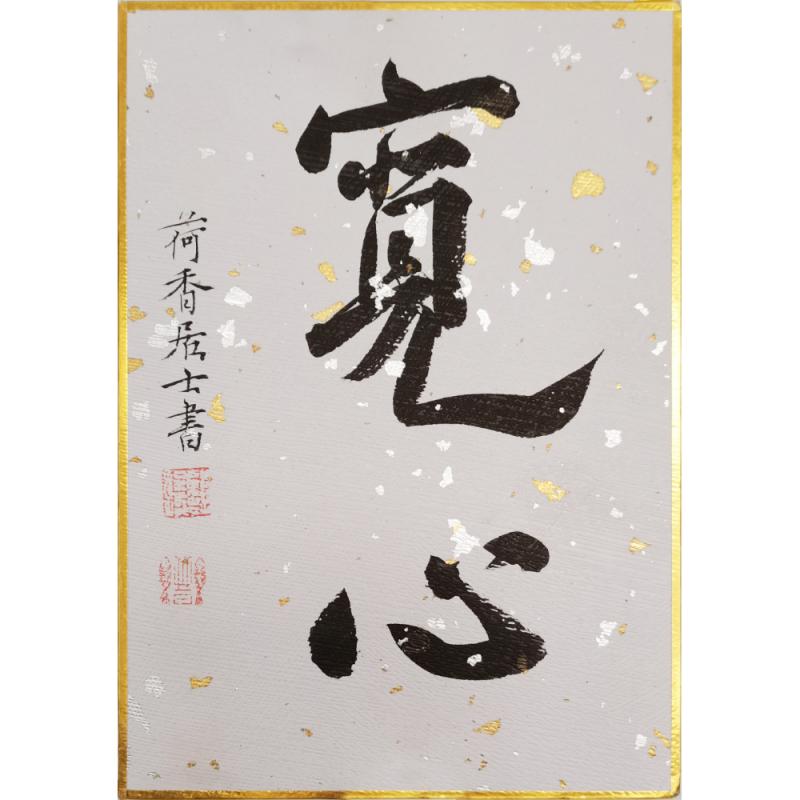 寬心
荷香居士書